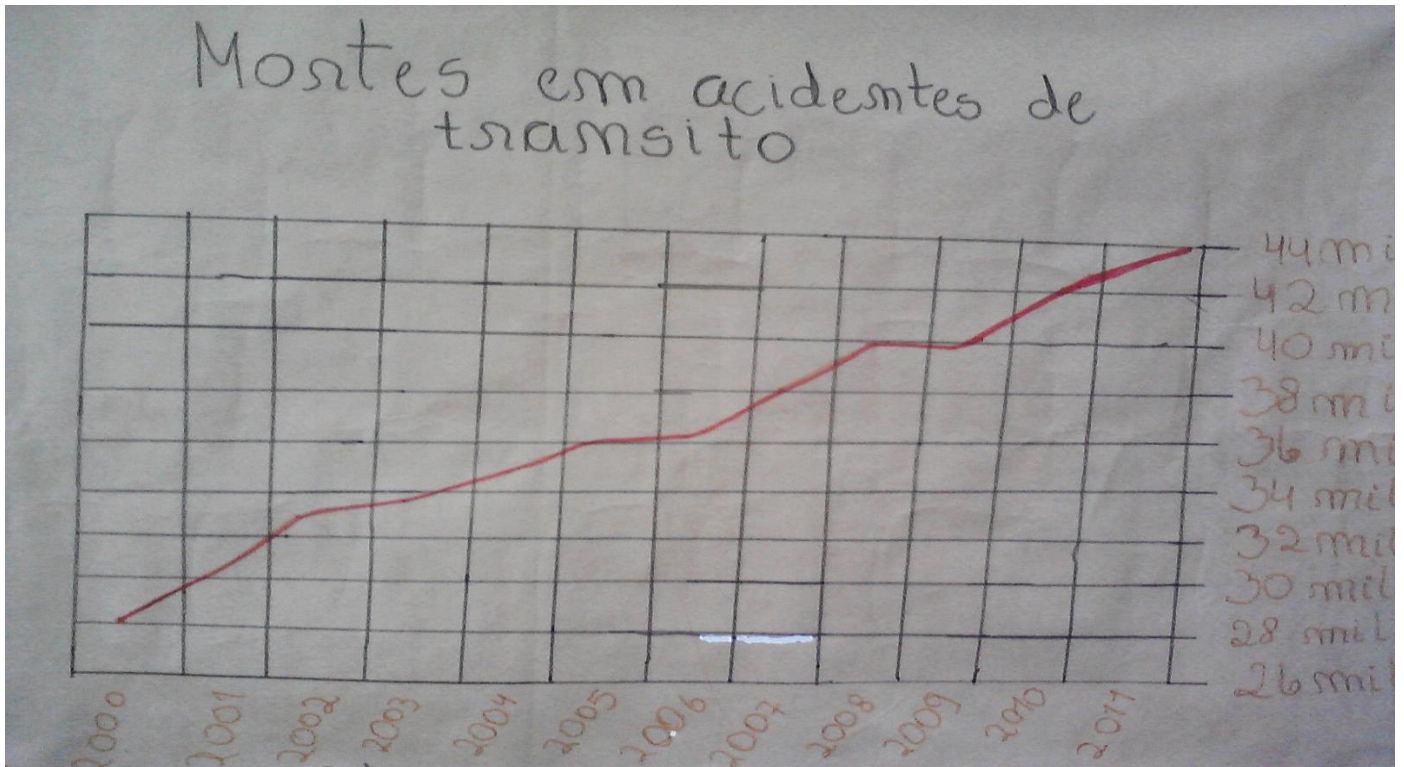 Mortes em acidentes de
trânsito
44 mi
42 m
40 mi
38 mi
36 mi
34 mil
32 mil
30 mil
28 mil
26 mil
2000
2001
2002
2003
2004
2005
2006
2007
2008
2009
2010
2011